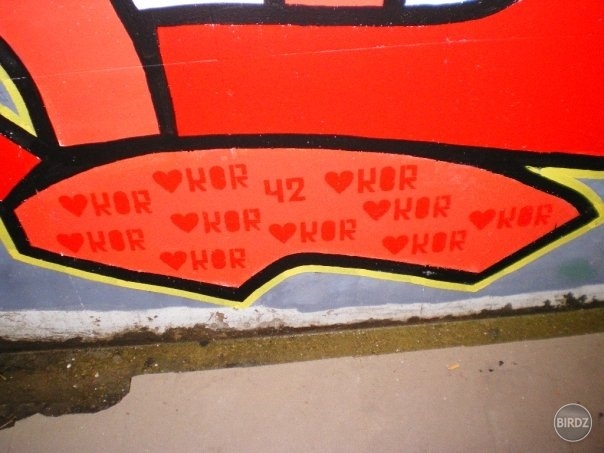 ♥KOR 42 ♥KOR
♥KOR ♥KOR ♥KOR ♥KOR
♥KOR ♥KOR ♥KOR
♥KOR
BIRDZ